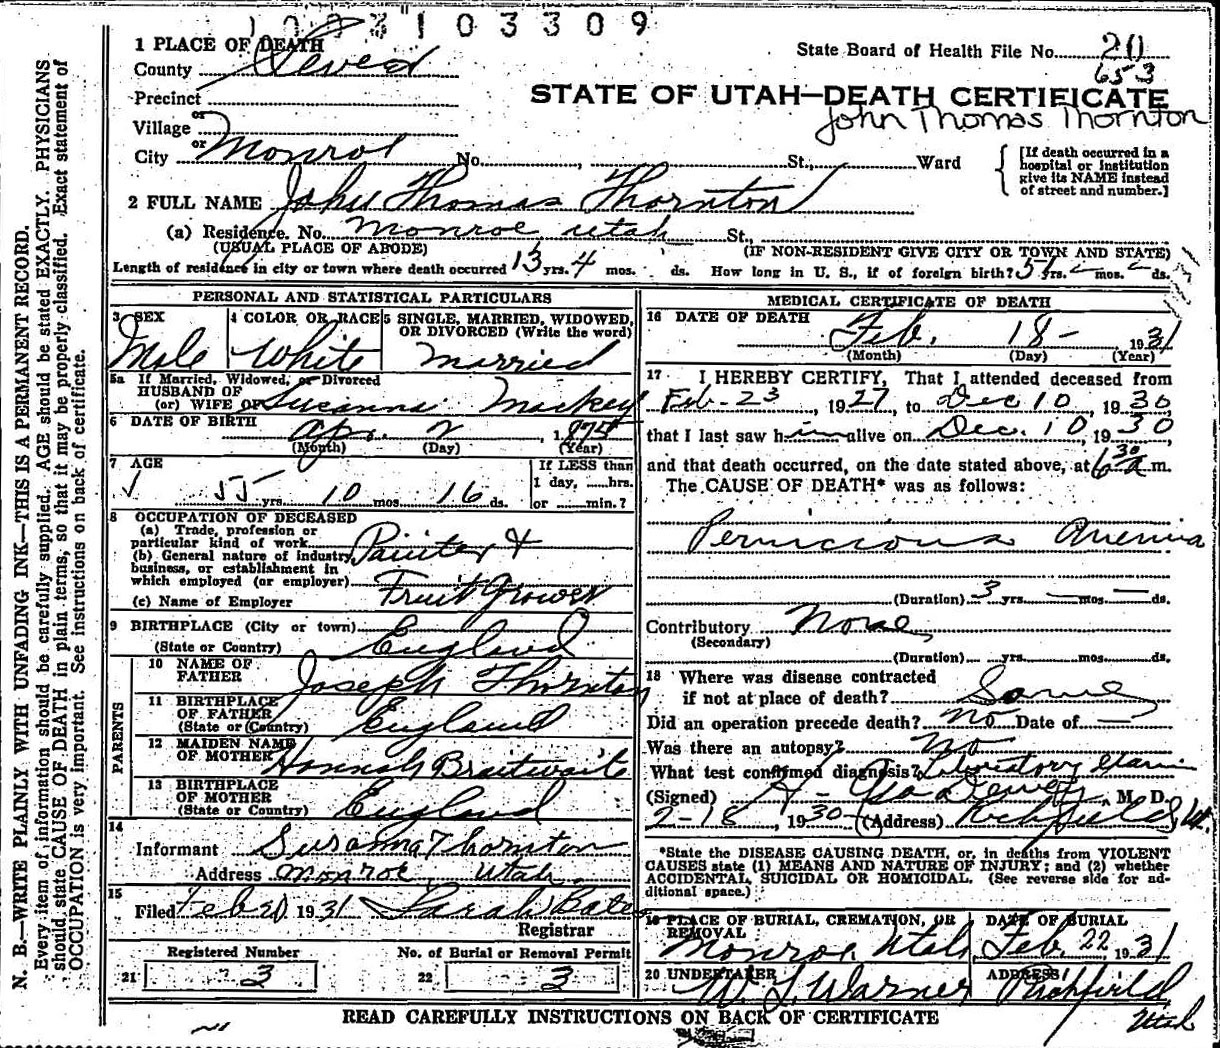 103309
1 PLACE OF DEATH
State Board of Health File No. 20
653
County Sevier
Precinct
STATE OF UTAH—DEATH CERTIFICATE
John Thomas Thornton
or
Village
or
City Monroe No. , St., Ward
[If death occurred in a hospital or institution give its NAME instead of street and number.]
2 FULL NAME John Thomas Thornton
(a) Residence. No. Monroe Utah St.,
(USUAL PLACE OF ABODE) (IF NON-RESIDENT GIVE CITY OR TOWN AND STATE)
Length of residence in city or town where death occurred 13 yrs. 4 mos. ds. How long in U. S., if of foreign birth? yrs. mos. ds.
PERSONAL AND STATISTICAL PARTICULARS
3 SEX 4 COLOR OR RACE 5 SINGLE, MARRIED, WIDOWED, OR DIVORCED (Write the word)
Male White Married
5a If Married, Widowed, or Divorced
HUSBAND OF
(or) WIFE OF Susanna Mackey
6 DATE OF BIRTH Apr. 2, 1875
(Month) (Day) (Year)
7 AGE
If LESS than
1 day, hrs.
55 yrs. 10 mos. 16 ds. or min.?
8 OCCUPATION OF DECEASED
(a) Trade, profession or
particular kind of work
(b) General nature of industry,
business, or establishment in
which employed (or employer)
Painter &
Fruit Grower
(c) Name of Employer
9 BIRTHPLACE (City or town)
(State or Country) England
PARENTS
10 NAME OF
FATHER Joseph Thornton
11 BIRTHPLACE
OF FATHER
(State or (Country) England
12 MAIDEN NAME
OF MOTHER Hannah Braitwaite
13 BIRTHPLACE
OF MOTHER
(State or Country) England
14
Informant Susanna Thornton
Address Monroe, Utah.
15
Filed Feb 20 1931 Sarah Bates
Registrar
Registered Number No. of Burial or Removal Permit
21 3 22 3
MEDICAL CERTIFICATE OF DEATH
16 DATE OF DEATH Feb. 18- 1931
(Month) (Day) (Year)
17 I HEREBY CERTIFY, That I attended deceased from
Feb-23, 1927, to Dec 10, 1930,
that I last saw him alive on Dec. 10, 1930
and that death occurred, on the date stated above, at 6 30 a m.
The CAUSE OF DEATH* was as follows:
Pernicious Anemia
(Duration) 3 yrs. — mos. — ds.
Contributory None
(Secondary)
(Duration) yrs. mos. ds.
18 Where was disease contracted
if not at place of death? Same
Did an operation precede death? No Date of —
Was there an autopsy? No
What test confirmed diagnosis? Laboratory Exam
(Signed) Dewey, M. D.
2-18, 1930 (Address) Richfield, Ut.
*State the DISEASE CAUSING DEATH, or, in deaths from VIOLENT
CAUSES state (1) MEANS AND NATURE OF INJURY; and (2) whether
ACCIDENTAL, SUICIDAL OR HOMICIDAL. (See reverse side for ad-
ditional space.)
19 PLACE OF BURIAL, CREMATION, OR REMOVAL DATE OF BURIAL
Monroe Utah, Feb. 22, 1931
20 UNDERTAKER ADDRESS
W. L. Warner Richfield, Utah
READ CAREFULLY INSTRUCTIONS ON BACK OF CERTIFICATE
N. B.—WRITE PLAINLY WITH UNFADING INK—THIS IS A PERMANENT RECORD.
Every item of information should be carefully supplied. AGE should be stated EXACTLY. PHYSICIANS
should state CAUSE OF DEATH in plain terms, so that it may be properly classified. Exact statement of
OCCUPATION is very important. See instructions on back of certificate.